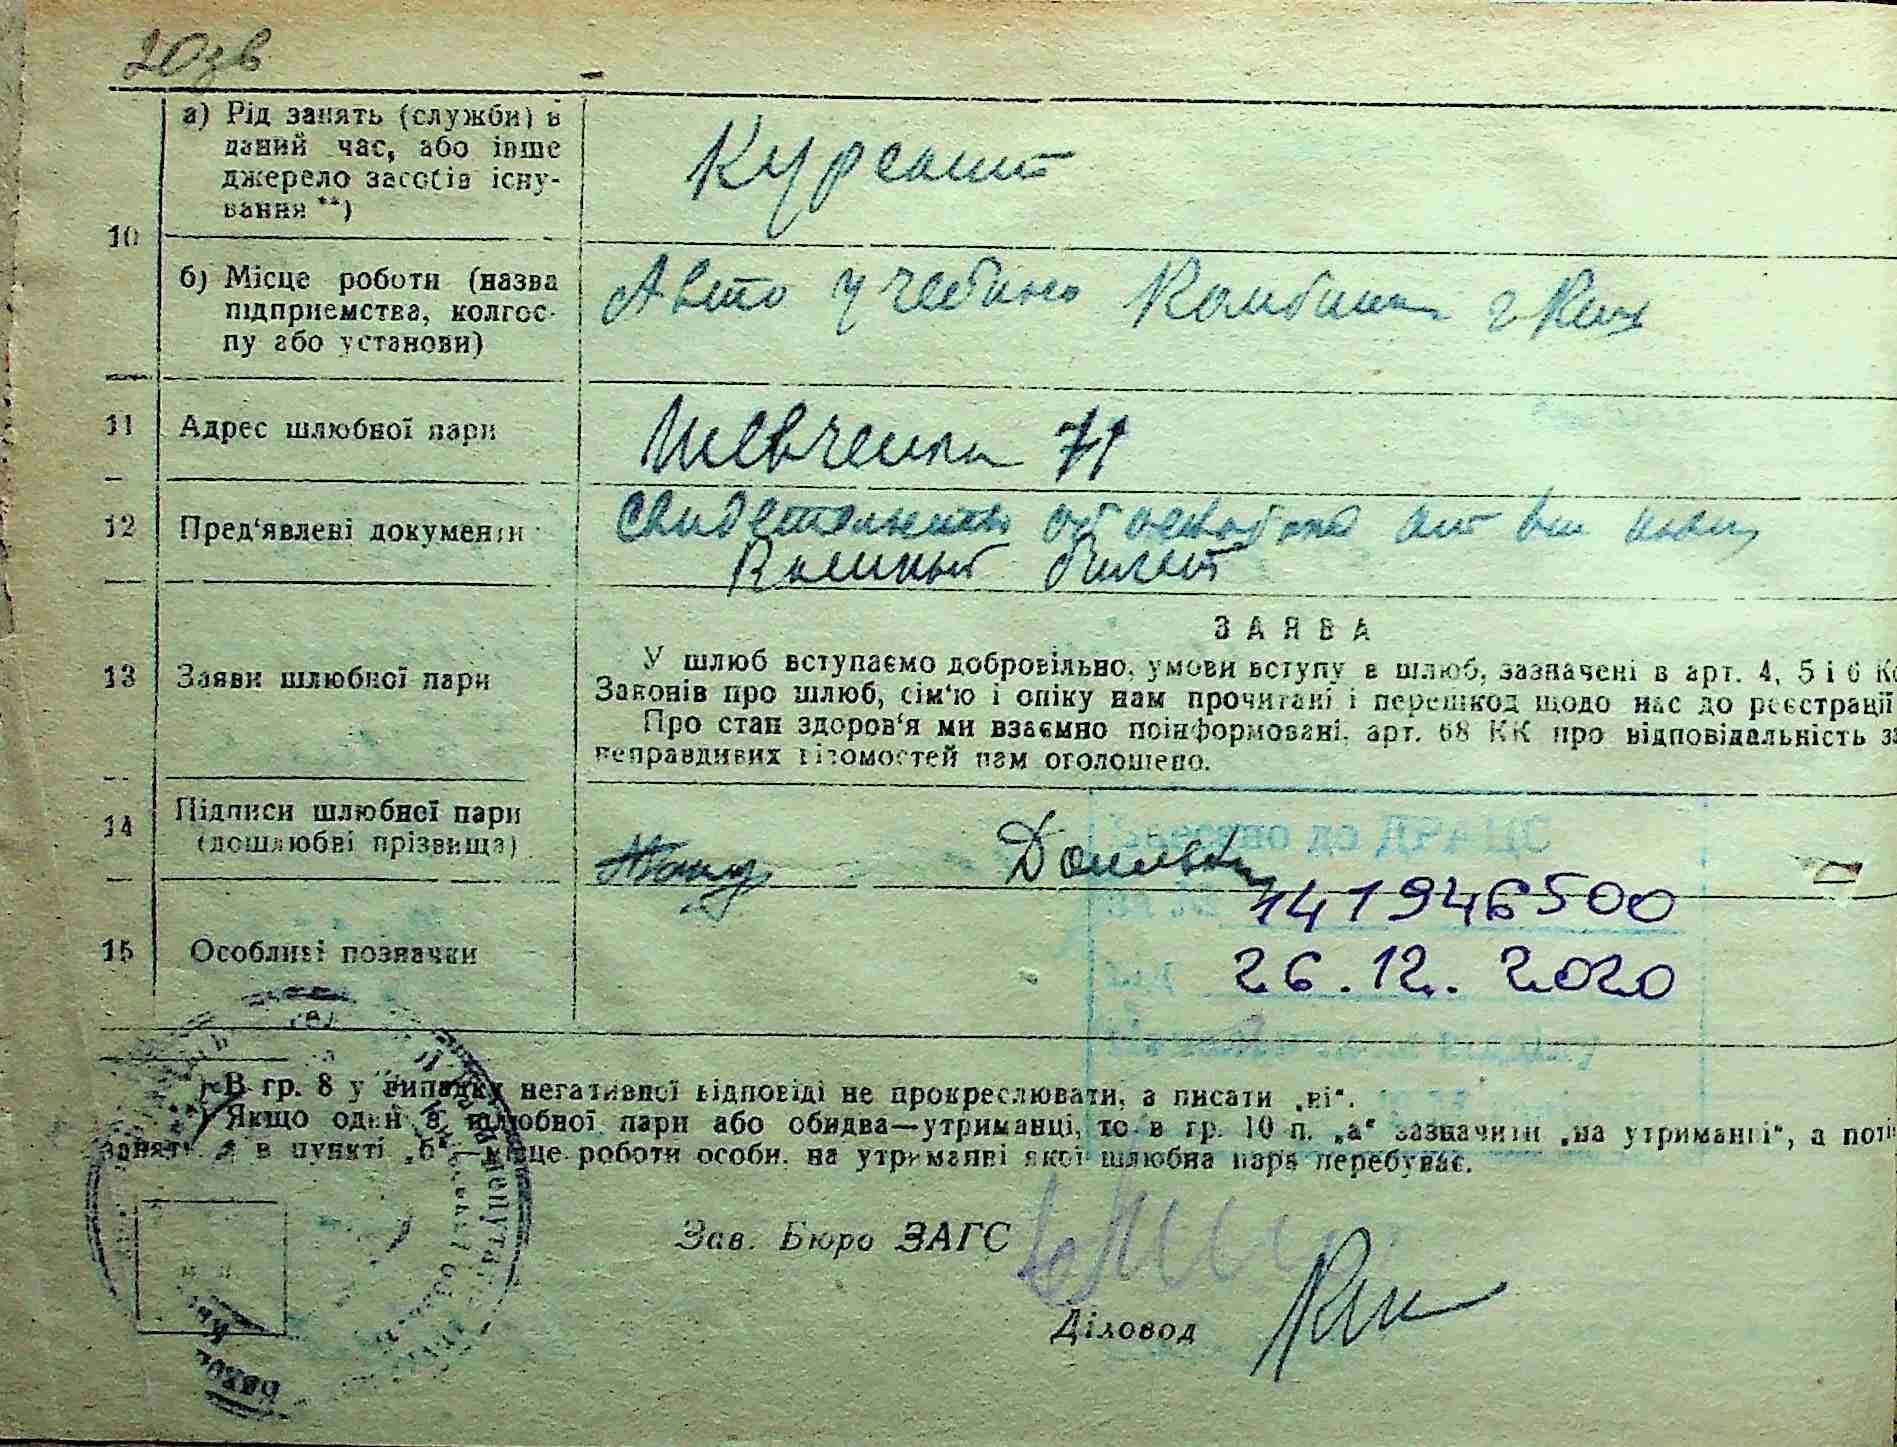 203в
а) Рід занять (служби) в
даний час, або інше
джерело засобів існу-
вання **)
Курсант
10
б) Місце роботи (назва
підприємства, колгос-
пу або установи)
Авто учебно Комбинат г
11 Адрес шлюбної пари
Шевченка 71
12 Пред'явлені документи
Свидетельство от
Военный билет
ЗАЯВА
13 Заяви шлюбної пари
У шлюб вступаємо добровільно, умови вступу в шлюб, зазначені в арт. 4, 5 і 6 Ко
Законів про шлюб, сім'ю і опіку нам прочитані і перешкод щодо нас до реєстрації
Про стан здоров'я ми взаємно поінформовані, арт. 68 КК про відповідальність за
неправдивих відомостей нам оголошено.
14 Підписи шлюбної пари
(дошлюбні прізвища)
Внесено до ДРАЦС
за № 141946500
15 Особливі позначки
від 26.12.2020
*) В гр. 8 у випадку негативної відповіді не прокреслювати, а писати „ні“.
**) Якщо один з шлюбної пари або обидва—утриманці, то в гр. 10 п. „а“ зазначити „на утриманні“, а поті
занять, а в пункті „б“—місце роботи особи, на утриманні якої шлюбна пара перебуває.
Зав. Бюро ЗАГС
Діловод